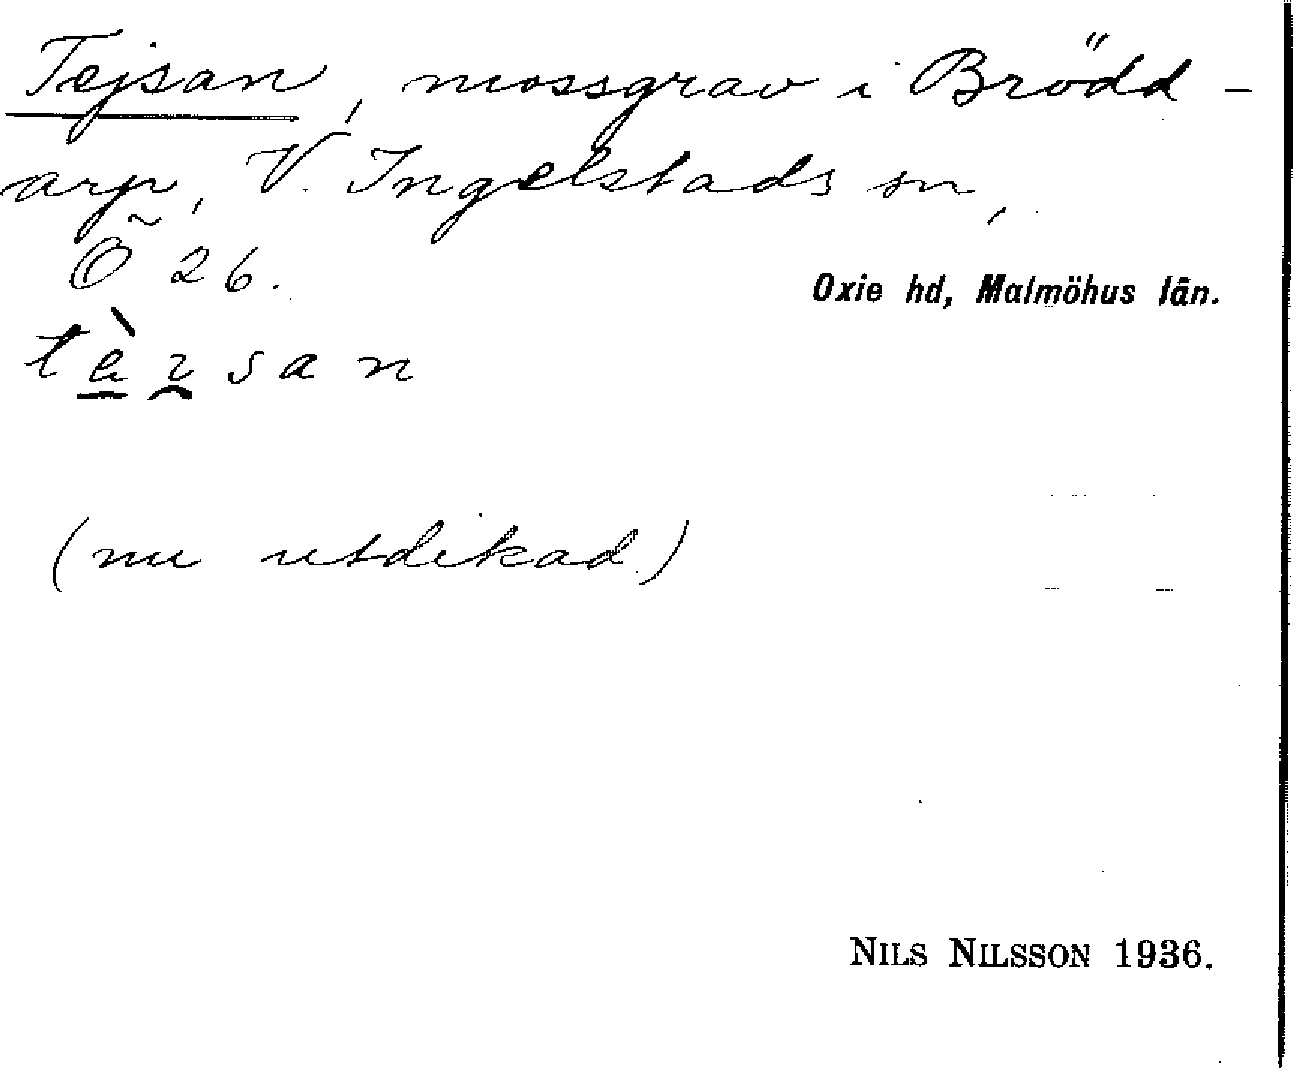 Tejsan, mossgrav i Brödd-
arp, V. Ingelstads sn,
Ö 26.
Oxie hd, Malmöhus län.
tèɪsan
(nu utdikad.)
NILS NILSSON 1936.